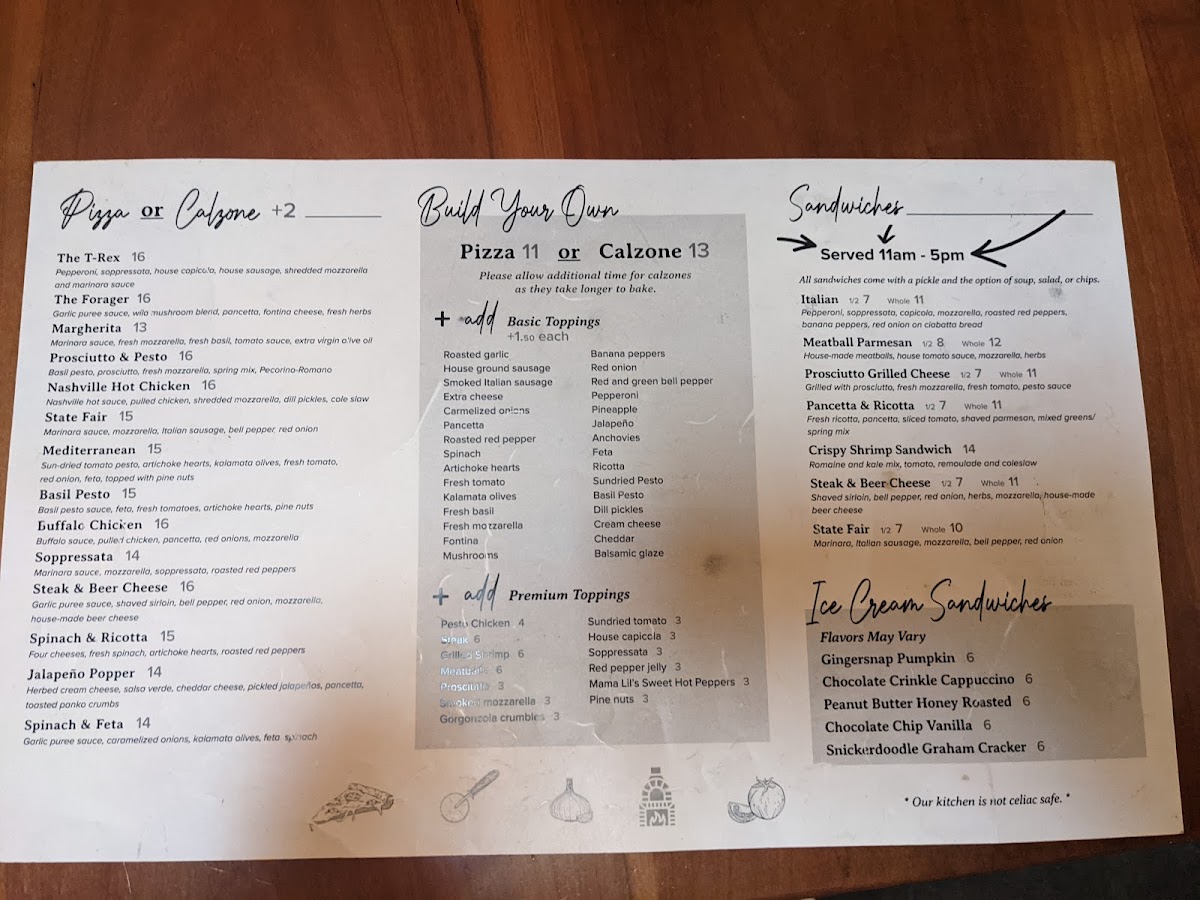 Pizza or Calzone +2
The T-Rex 16
Pepperoni, soppressata, house capicola, house sausage, shredded mozzarella
and marinara sauce
The Forager 16
Garlic puree sauce, wild mushroom blend, pancetta, fontina cheese, fresh herbs
Margherita 13
Marinara sauce, fresh mozzarella, fresh basil, tomato sauce, extra virgin olive oil
Prosciutto & Pesto 16
Basil pesto, prosciutto, fresh mozzarella, spring mix, Pecorino-Romano
Nashville Hot Chicken 16
Nashville hot sauce, pulled chicken, shredded mozzarella, dill pickles, cole slaw
State Fair 15
Marinara sauce, mozzarella, Italian sausage, bell pepper, red onion
Mediterranean 15
Sun-dried tomato pesto, artichoke hearts, kalamata olives, fresh tomato,
red onion, feta, topped with pine nuts
Basil Pesto 15
Basil pesto sauce, feta, fresh tomatoes, artichoke hearts, pine nuts
Buffalo Chicken 16
Buffalo sauce, pulled chicken, pancetta, red onions, mozzarella
Soppressata 14
Marinara sauce, mozzarella, soppressata, roasted red peppers
Steak & Beer Cheese 16
Garlic puree sauce, shaved sirloin, bell pepper, red onion, mozzarella,
house-made beer cheese
Spinach & Ricotta 15
Four cheeses, fresh spinach, artichoke hearts, roasted red peppers
Jalapeño Popper 14
Herbed cream cheese, salsa verde, cheddar cheese, pickled jalapeños, pancetta,
toasted panko crumbs
Spinach & Feta 14
Garlic puree sauce, caramelized onions, kalamata olives, feta, spinach
Build Your Own
Pizza 11 or Calzone 13
Please allow additional time for calzones
as they take longer to bake.
+ add Basic Toppings
+1.50 each
Roasted garlic
House ground sausage
Smoked Italian sausage
Extra cheese
Carmelized onions
Pancetta
Roasted red pepper
Spinach
Artichoke hearts
Fresh tomato
Kalamata olives
Fresh basil
Fresh mozzarella
Fontina
Mushrooms
Banana peppers
Red onion
Red and green bell pepper
Pepperoni
Pineapple
Jalapeño
Anchovies
Feta
Ricotta
Sundried Pesto
Basil Pesto
Dill pickles
Cream cheese
Cheddar
Balsamic glaze
+ add Premium Toppings
Pesto Chicken 4
Steak 6
Grilled Shrimp 6
Meatballs 6
Prosciutto 3
Smoked mozzarella 3
Gorgonzola crumbles 3
Sundried tomato 3
House capicola 3
Soppressata 3
Red pepper jelly 3
Mama Lil's Sweet Hot Peppers 3
Pine nuts 3
Sandwiches
Served 11am - 5pm
All sandwiches come with a pickle and the option of soup, salad, or chips.
Italian 1/2 7 Whole 11
Pepperoni, soppressata, capicola, mozzarella, roasted red peppers,
banana peppers, red onion on ciabatta bread
Meatball Parmesan 1/2 8 Whole 12
House-made meatballs, house tomato sauce, mozzarella, herbs
Prosciutto Grilled Cheese 1/2 7 Whole 11
Grilled with prosciutto, fresh mozzarella, fresh tomato, pesto sauce
Pancetta & Ricotta 1/2 7 Whole 11
Fresh ricotta, pancetta, sliced tomato, shaved parmesan, mixed greens/
spring mix
Crispy Shrimp Sandwich 14
Romaine and kale mix, tomato, remoulade and coleslaw
Steak & Beer Cheese 1/2 7 Whole 11
Shaved sirloin, bell pepper, red onion, herbs, mozzarella, house-made
beer cheese
State Fair 1/2 7 Whole 10
Marinara, Italian sausage, mozzarella, bell pepper, red onion
Ice Cream Sandwiches
Flavors May Vary
Gingersnap Pumpkin 6
Chocolate Crinkle Cappuccino 6
Peanut Butter Honey Roasted 6
Chocolate Chip Vanilla 6
Snickerdoodle Graham Cracker 6
* Our kitchen is not celiac safe. *